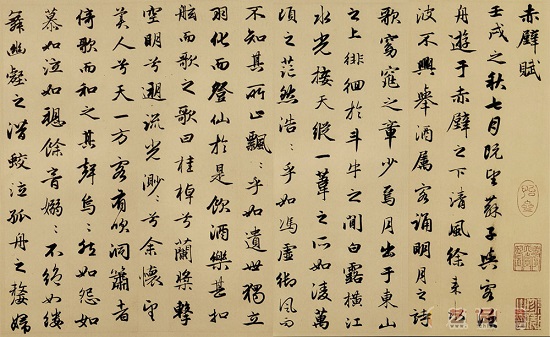 赤壁賦
壬戌之秋七月既望蘇子與客泛
舟遊于赤壁之下清風徐来水
波不興舉酒屬客誦明月之詩
歌窈窕之章少焉月出于東山
之上徘徊於斗牛之間白露橫江
水光接天縱一葦之所如淩萬
頃之茫然浩〻乎如馮虛御風而
不知其所止飄〻乎如遺世獨立
羽化而登仙於是飲酒樂甚扣
舷而歌之歌曰桂棹兮蘭槳擊
空明兮遡流光渺〻兮余懷望
美人兮天一方客有吹洞簫者
倚歌而和之其聲嗚〻然如怨如
慕如泣如愬餘音嫋〻不絕如縷
舞幽壑之潛蛟泣孤舟之嫠婦